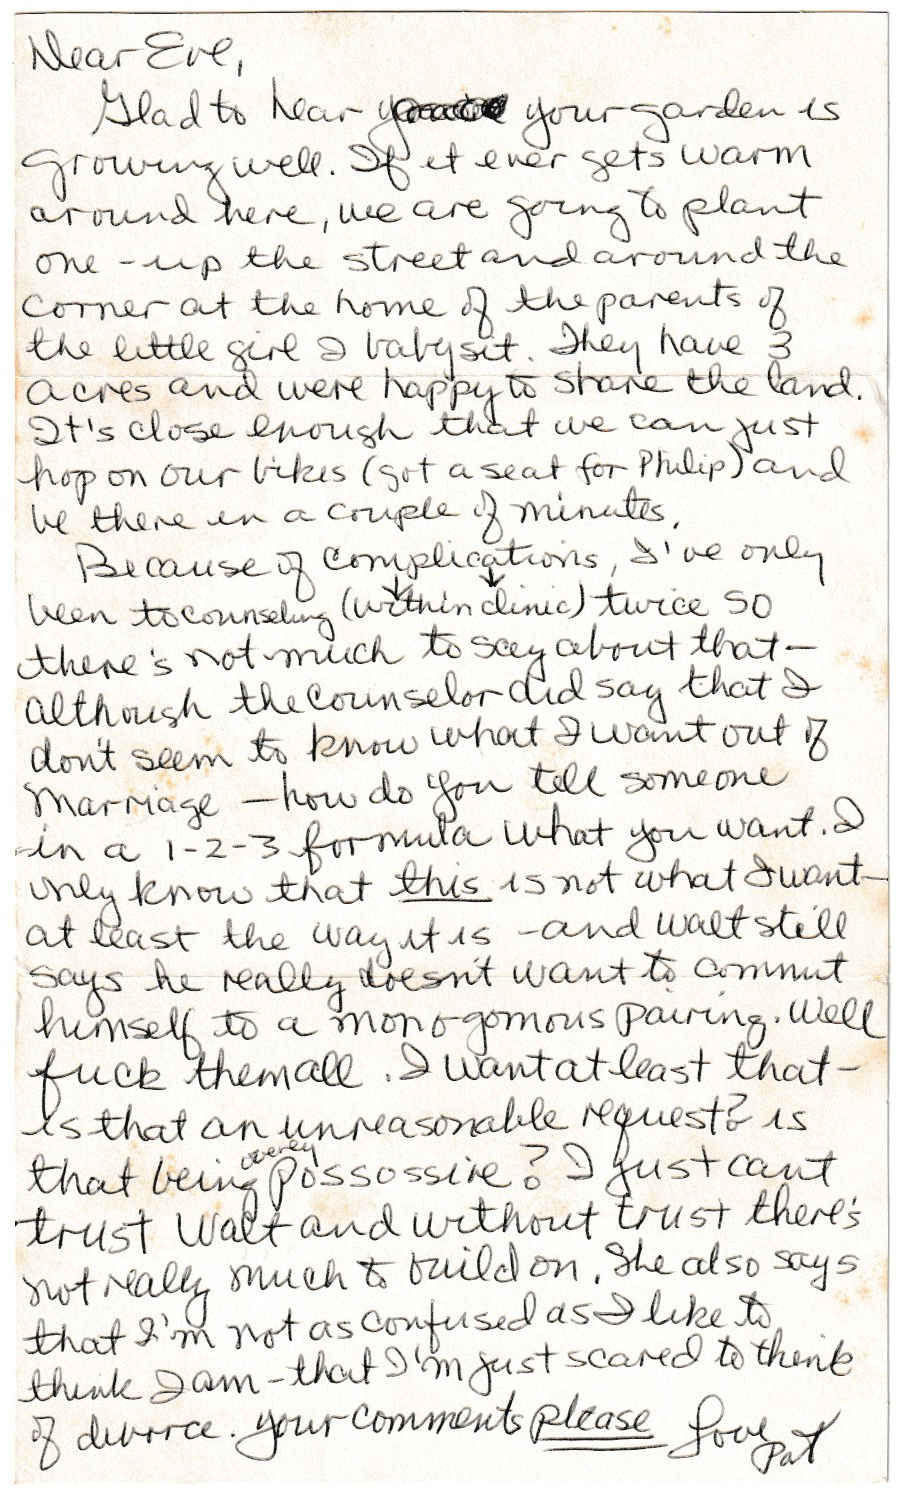 Dear Eve,
Glad to hear your garden is
growing well. If it ever gets warm
around here, we are going to plant
one - up the street and around the
corner at the home of the parents of
the little girl I babysit. They have 3
acres and were happy to share the land.
It's close enough that we can just
hop on our bikes (got a seat for Philip) and
be there in a couple of minutes.
Because of complications, I've only
been to counseling (within clinic) twice so
there's not much to say about that -
although the counselor did say that I
don't seem to know what I want out of
marriage - how do you tell someone
in a 1-2-3 formula what you want. I
only know that this is not what I want -
at least the way it is - and Walt still
says he really doesn't want to commit
himself to a mono-gomous pairing. Well
fuck them all. I want at least that -
is that an unreasonable request? is
that being overly possossive? I just can't
trust Walt and without trust there's
not really much to build on. She also says
that I'm not as confused as I like to
think I am - that I'm just scared to think
of divorce. Your comments please Love
Pat